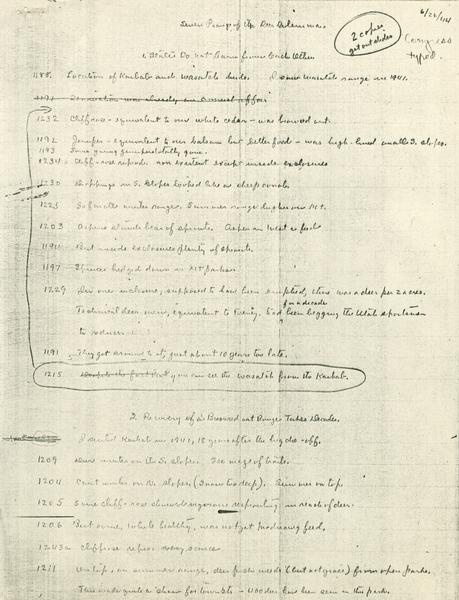 6/26/41
Seven Prongs of the Deer Dilemma
2 copies
get out slides
Congress
typed
1. States Do not Learn from Each Other
1188. Location of Kaibab and Wasatch herds. I saw Wasatch range in 1941.
1191 Domination was already an annual affair
1232 Cliffrose - equivalent to our white cedar - was browsed out.
1192 Juniper - equivalent to our balsam but better food - was high-lined on S. slopes.
1193 Some young junipers totally gone.
1234 Cliff-rose reprod. non existent except inside exclosures
1230 Droppings on S. slopes looked like a sheep corral.
1225 So few winter range. Summer range higher on Mt.
1203 Aspens stands bear of sprouts. Aspen in West is food
1194 But inside exclosures plenty of sprouts.
1197 Spruces hedged down in mt parks.
1229 In one inclosure, supposed to have been emptied, there was a deer per 2 acres.
Technical deer men, equivalent to Feeney, had for a decade been begging the Utah sportsmen
to reduce
1191 They got around to it, just about 10 years too late.
1215 you can see the Wasatch from the Kaibab.
2. Recovery of a Browsed out Range Takes Decades.
I visited Kaibab in 1941, 18 years after the big die-off.
1209 Deer winter on the S. slopes. See maze of trails.
1204 Can't winter on N. slopes (Snow too deep). Summer on top.
1205 Some cliff-rose shows vigorous resprouting in reach of deer.
1206 But some, while healthy, was not yet producing feed.
1243a Cliffrose reprod very scarce
1211 On top, on summer range, deer find weeds (but not grass) from open parks.
This made quite a show for tourists - 400 deer has been seen in this park.